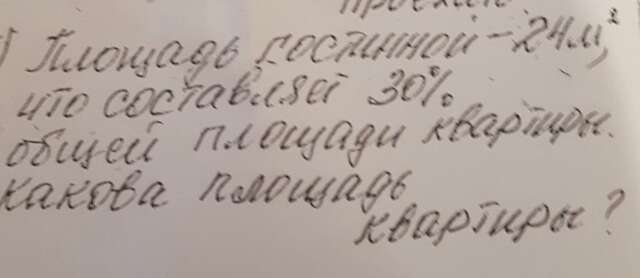 ) Площадь гостинной - 24м²,
что составляет 30%
общей площади квартиры.
Какова площадь
квартиры?